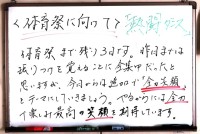 <体育祭に向って> 熱闘クラス
体育祭まで残り3日です。昨日までは
振りつけを覚えることに全集中だったと
思いますが、今日からは追加で「全力笑顔」
をテーマにしていきましょう。やるからには全力
で楽しみ最高の笑顔を期待しています。